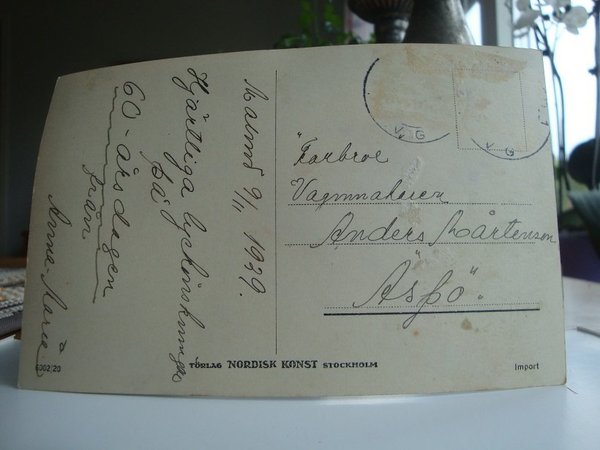 Malmö 9/11 1939.
Hjärtliga lyckönskningar
på
60-årsdagen
från
Anna-Maria
"Farbror
Vagnmakaren
Anders Mårtenson
"Äspö".
V G
V G
6002/20
FÖRLAG NORDISK KONST STOCKHOLM
Import